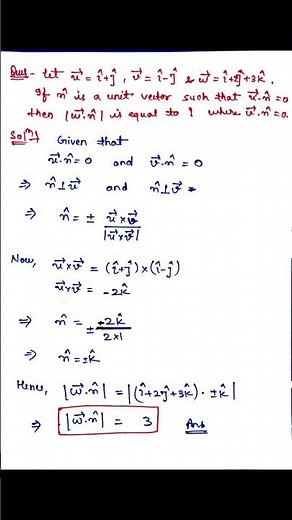 Ques- Let u⃗ = î+ĵ, v⃗ = î-ĵ & w⃗ = î+2ĵ+3k̂.
If n̂ is a unit vector such that u⃗.n̂=0
then |w⃗.n̂| is equal to ? where v⃗.n̂=0.
Sol(n)! Given that
u⃗.n̂=0 and v⃗.n̂ = 0
⇒ n̂⊥u⃗ and n̂⊥v⃗
⇒ n̂ = ± u⃗×v⃗ / |u⃗×v⃗|
Now, u⃗×v⃗ = (î+ĵ)×(î-ĵ)
u⃗×v⃗ = -2k̂
⇒ n̂ = ± -2k̂ / 2×1
⇒ n̂ = ±k̂
Hence, |w⃗.n̂| = |(î+2ĵ+3k̂). ±k̂|
⇒ |w⃗.n̂| = 3 Ans